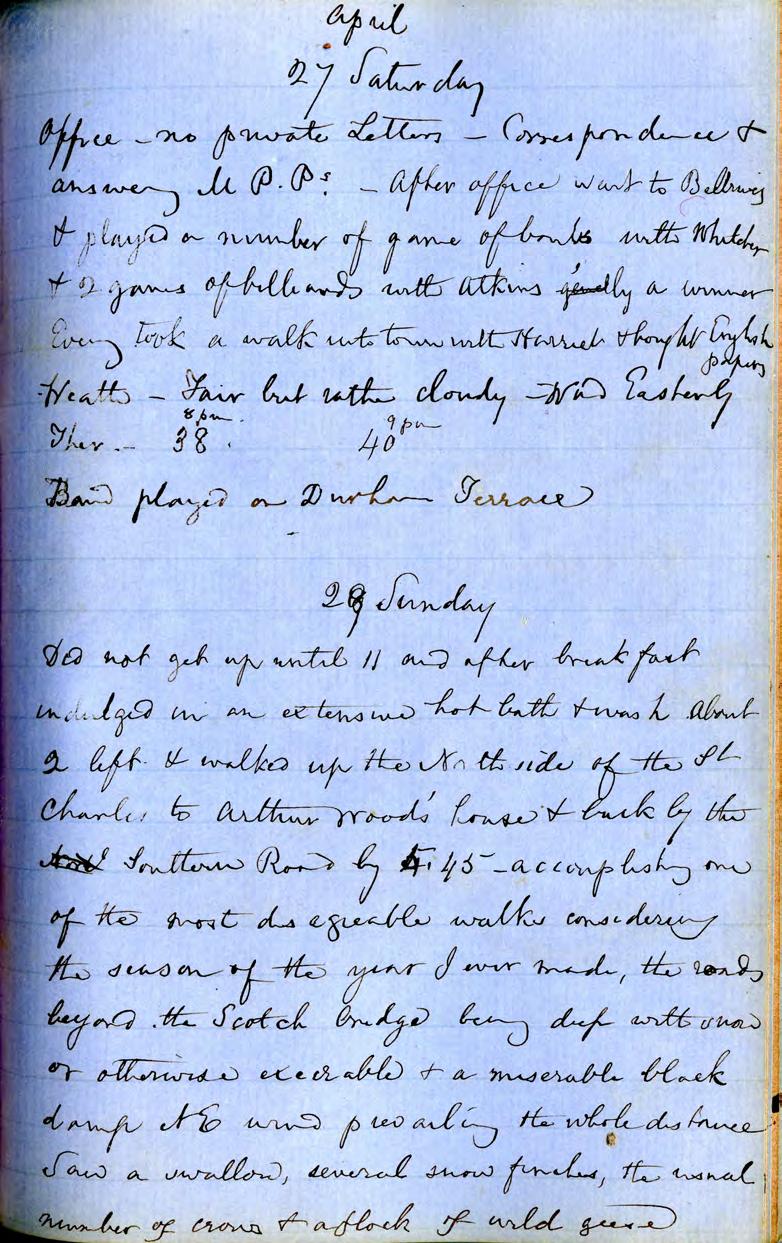 April
27 Saturday
Office - no private Letters - Correspondence &
answering M P. Ps. - After office went to
& played a number of game of bowls with
& 2 games of billiards with Atkins a winner
Eveng took a walk into town with Harriet & bought English
papers
Weather - Fair but rather cloudy - Wind Easterly
8 pm. 9 pm
Ther. - 38. 40
Band played on Durham Terrace
28 Sunday
Did not get up until 11 and after breakfast
indulged in an extensive hot bath & wash about
2 left & walked up the North side of the St
Charles to Arthur Woods' house & back by the
Southern Road by 5.45 - accomplishing one
of the most disagreable walks considering
the season of the year I ever made, the roads
beyond the Scotch bridge being deep with snow
or otherwise execrable & a miserable black
damp NE wind prevailing the whole distance
Saw a swallow, several snow finches, the usual
number of crows & a flock of wild geese